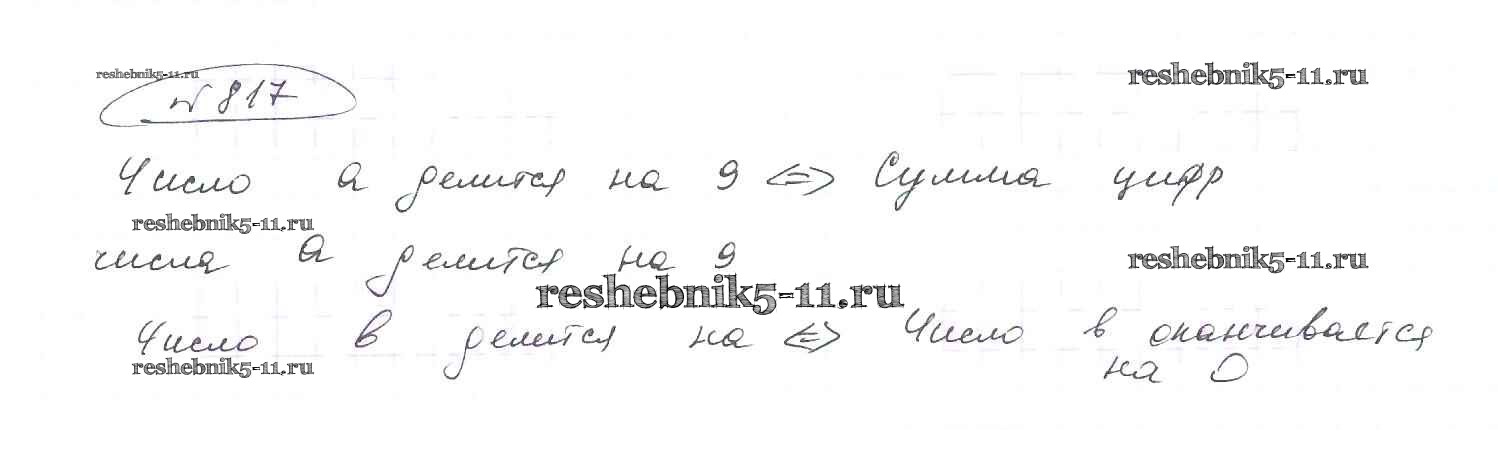 reshebnik5-11.ru
reshebnik5-11.ru
№ 817
Число a делится на 9 <=> Сумма цифр
reshebnik5-11.ru
числа a делится на 9
reshebnik5-11.ru
reshebnik5-11.ru
Число в делится на <=> Число в оканчивается
на 0
reshebnik5-11.ru